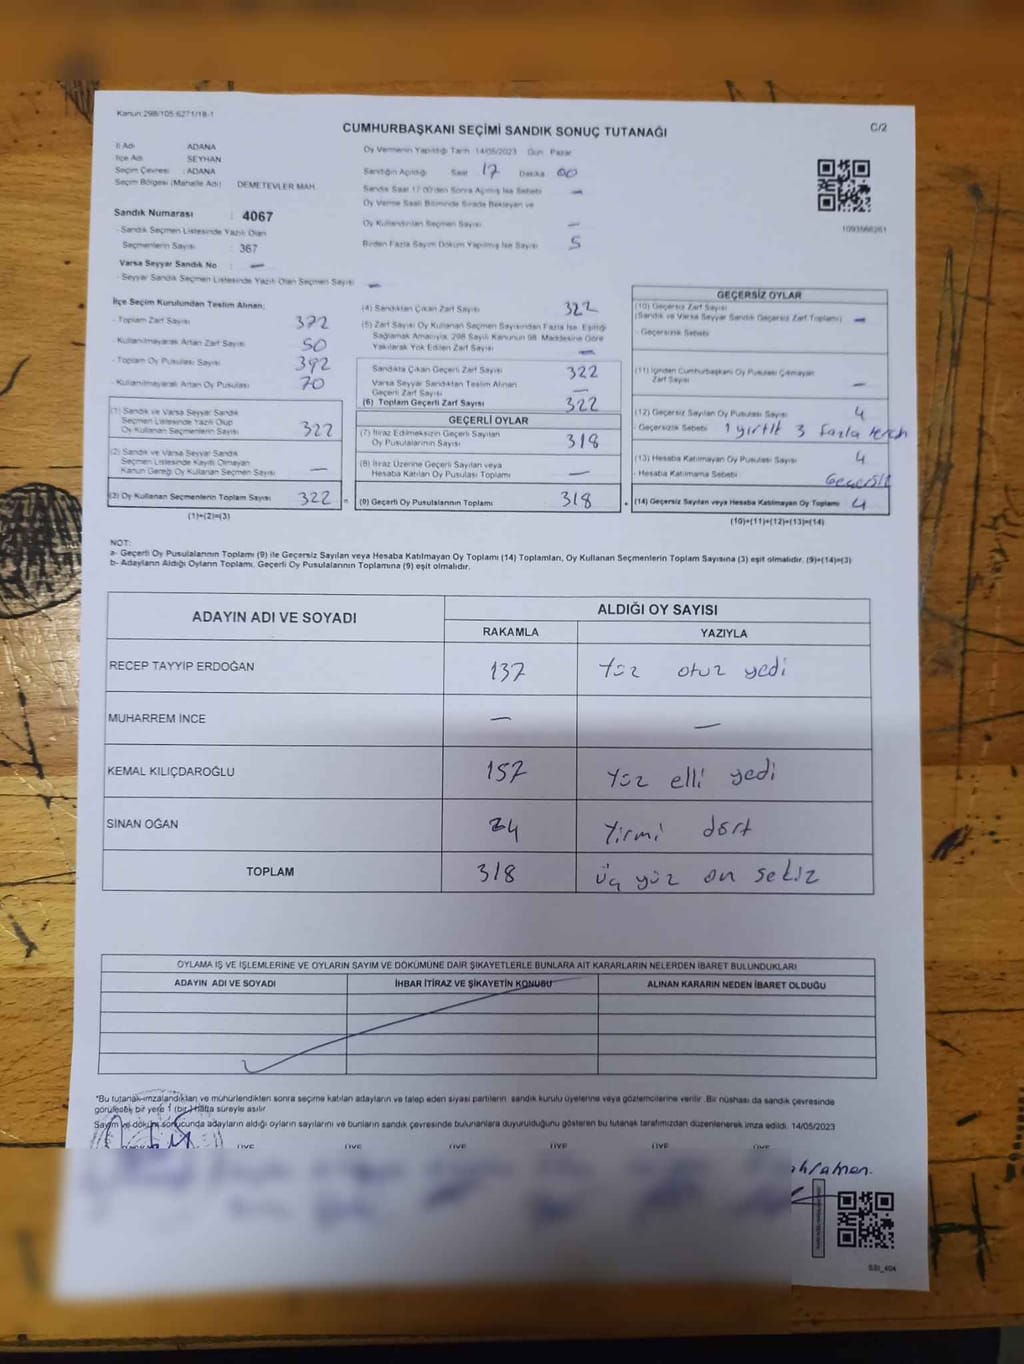 Kanun:298/105:6271/18-1
C/2
CUMHURBAŞKANI SEÇİMİ SANDIK SONUÇ TUTANAĞI
İl Adı ADANA
İlçe Adı SEYHAN
Seçim Çevresi : ADANA
Seçim Bölgesi (Mahalle Adı) DEMETEVLER MAH.
Sandık Numarası : 4067
- Sandık Seçmen Listesinde Yazılı Olan
Seçmenlerin Sayısı : 367
Varsa Seyyar Sandık No : —
- Seyyar Sandık Seçmen Listesinde Yazılı Olan Seçmen Sayısı —
Oy Vermenin Yapıldığı Tarih 14/05/2023 Gün Pazar
Sandığın Açıldığı Saat 17 Dakika 00
Sandık Saat 17.00'den Sonra Açılmış İse Sebebi —
Oy Verme Saati Bitiminde Sırada Bekleyen ve
Oy Kullandırılan Seçmen Sayısı —
Birden Fazla Sayım Döküm Yapılmış İse Sayısı 5
1093566261
İlçe Seçim Kurulundan Teslim Alınan:
- Toplam Zarf Sayısı 372
- Kullanılmayarak Artan Zarf Sayısı 50
- Toplam Oy Pusulası Sayısı 392
- Kullanılmayarak Artan Oy Pusulası 70
(1) Sandık ve Varsa Seyyar Sandık
Seçmen Listesinde Yazılı Olup
Oy Kullanan Seçmenlerin Sayısı 322
(2) Sandık ve Varsa Seyyar Sandık
Seçmen Listesinde Kayıtlı Olmayan
Kanun Gereği Oy Kullanan Seçmen Sayısı —
(3) Oy Kullanan Seçmenlerin Toplam Sayısı 322
(1)+(2)=(3)
(4) Sandıktan Çıkan Zarf Sayısı 322
(5) Zarf Sayısı Oy Kullanan Seçmen Sayısından Fazla İse, Eşitliği
Sağlamak Amacıyla, 298 Sayılı Kanunun 98. Maddesine Göre
Yakılarak Yok Edilen Zarf Sayısı —
Sandıkta Çıkan Geçerli Zarf Sayısı 322
Varsa Seyyar Sandıktan Teslim Alınan
Geçerli Zarf Sayısı —
(6) Toplam Geçerli Zarf Sayısı 322
GEÇERLİ OYLAR
(7) İtiraz Edilmeksizin Geçerli Sayılan
Oy Pusulalarının Sayısı 318
(8) İtiraz Üzerine Geçerli Sayılan veya
Hesaba Katılan Oy Pusulası Toplamı —
= (9) Geçerli Oy Pusulalarının Toplamı 318
GEÇERSİZ OYLAR
(10) Geçersiz Zarf Sayısı
(Sandık ve Varsa Seyyar Sandık Geçersiz Zarf Toplamı) —
- Geçersizlik Sebebi
(11) İçinden Cumhurbaşkanı Oy Pusulası Çıkmayan
Zarf Sayısı —
(12) Geçersiz Sayılan Oy Pusulası Sayısı 4
- Geçersizlik Sebebi 1 yırtık 3 fazla tercih
(13) Hesaba Katılmayan Oy Pusulası Sayısı 4
- Hesaba Katılmama Sebebi Geçersiz
+ (14) Geçersiz Sayılan veya Hesaba Katılmayan Oy Toplamı 4
(10)+(11)+(12)+(13)=(14)
NOT:
a- Geçerli Oy Pusulalarının Toplamı (9) ile Geçersiz Sayılan veya Hesaba Katılmayan Oy Toplamı (14) Toplamları, Oy Kullanan Seçmenlerin Toplam Sayısına (3) eşit olmalıdır. (9)+(14)=(3)
b- Adayların Aldığı Oyların Toplamı, Geçerli Oy Pusulalarının Toplamına (9) eşit olmalıdır.
ADAYIN ADI VE SOYADI ALDIĞI OY SAYISI
RAKAMLA YAZIYLA
RECEP TAYYİP ERDOĞAN 137 Yüz otuz yedi
MUHARREM İNCE — —
KEMAL KILIÇDAROĞLU 157 Yüz elli yedi
SİNAN OĞAN 24 Yirmi dört
TOPLAM 318 üç yüz on sekiz
OYLAMA İŞ VE İŞLEMLERİNE VE OYLARIN SAYIM VE DÖKÜMÜNE DAİR ŞİKAYETLERLE BUNLARA AİT KARARLARIN NELERDEN İBARET BULUNDUKLARI
ADAYIN ADI VE SOYADI İHBAR İTİRAZ VE ŞİKAYETİN KONUSU ALINAN KARARIN NEDEN İBARET OLDUĞU
*Bu tutanak imzalandıktan ve mühürlendikten sonra seçime katılan adayların ve talep eden siyasi partilerin, sandık kurulu üyelerine veya gözlemcilerine verilir. Bir nüshası da sandık çevresinde
görülecek bir yere 1 (bir) Hafta süreyle asılır
Sayım ve döküm sonucunda adayların aldığı oyların sayılarını ve bunların sandık çevresinde bulunanlara duyurulduğunu gösteren bu tutanak tarafımızdan düzenlenerek imza edildi. 14/05/2023
ÜYE ÜYE ÜYE ÜYE ÜYE ÜYE
SSI_404